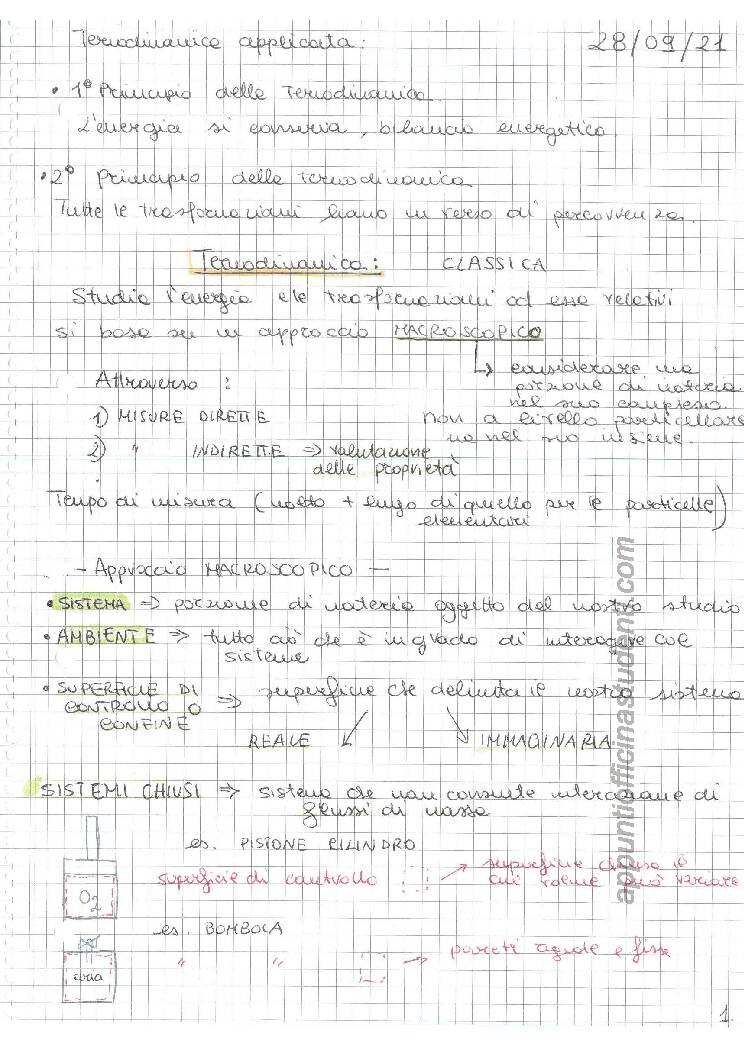 Termodinamica applicata: 28/09/21
• 1° Principio della Termodinamica
L'energia si conserva, bilancio energetico
• 2° Principio della termodinamica
Tutte le trasformazioni hanno un verso di percorrenza.
Termodinamica: CLASSICA
Studia l'energia e le trasformazioni ad essa relativi
si basa su un approccio MACROSCOPICO
↳ considerare una
porzione di materia
nel suo complesso.
non a livello particellare
ma nel suo insieme.
Attraverso :
1) MISURE DIRETTE
2) " INDIRETTE ⇒ valutazione
delle proprietà
Tempo di misura (molto + lungo di quello per le particelle
elementari)
- Approccio MACROSCOPICO -
• SISTEMA ⇒ porzione di materia oggetto del nostro studio
• AMBIENTE ⇒ tutto ciò che è in grado di interagire col
sistema
• SUPERFICIE DI
CONTROLLO O
CONFINE
⇒ superficie che delimita il nostro sistema
REALE IMMAGINARIA
SISTEMI CHIUSI ⇒ sistema che non consente interazione di
flussi di massa
es. PISTONE CILINDRO
superficie di controllo → superficie chiusa il
cui volume può variare
O2
es. BOMBOLA
" " → pareti rigide e fisse
aria
appuntiofficinastudenti.com
1